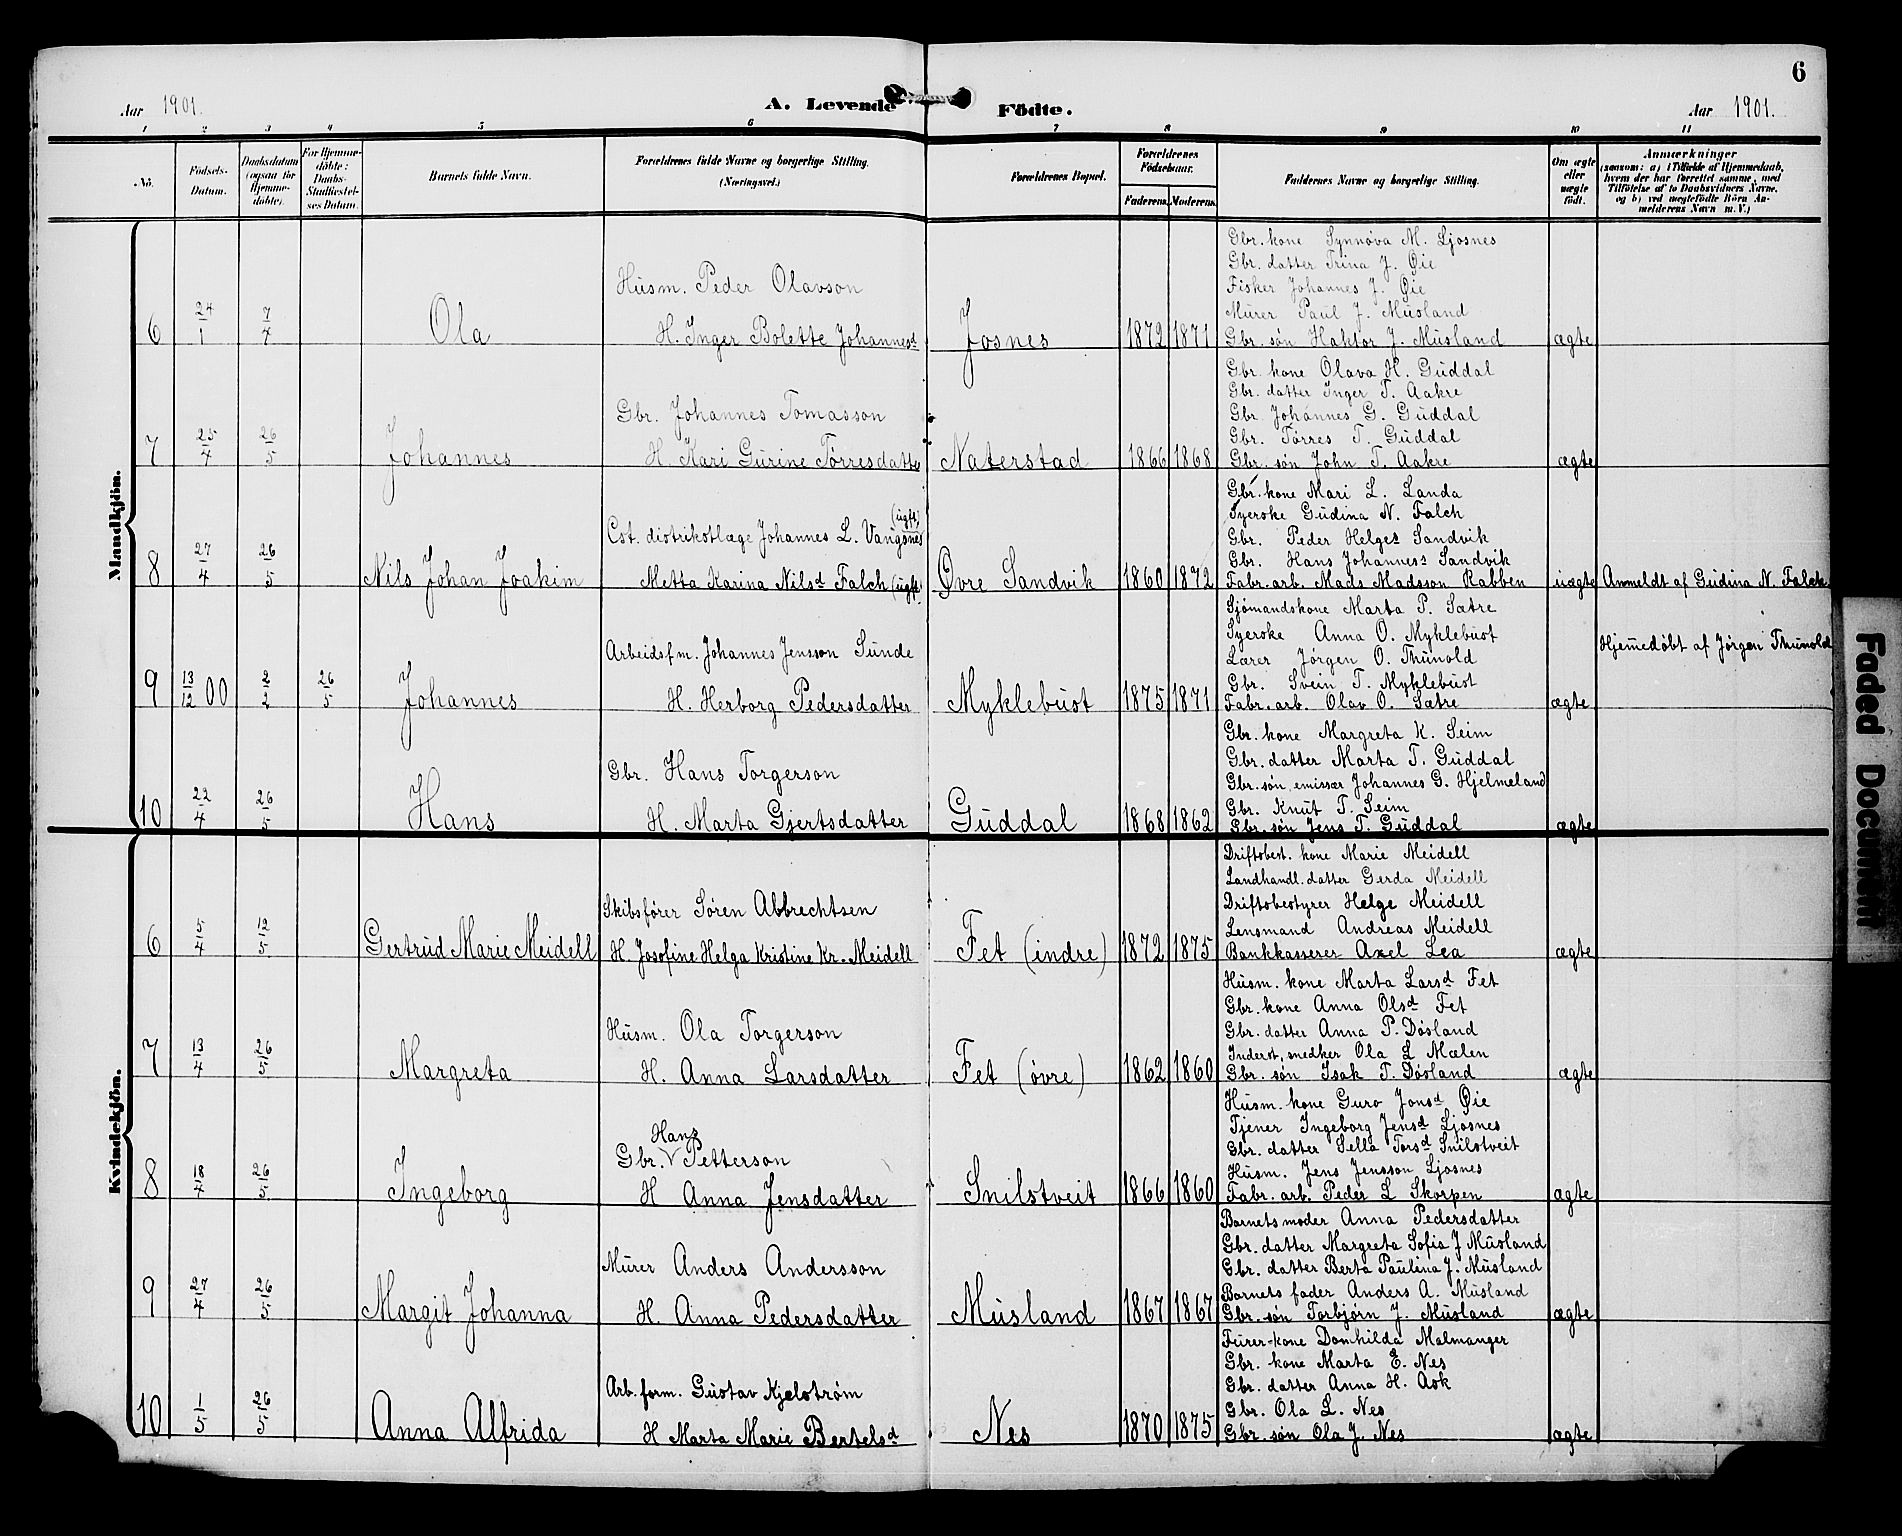 6
Aar 1901. A. Levende Födte. Aar 1901.
1 2 3 4 5 6 7 8 9 10 11
No. Födsels-Datum. Daabsdatum (ogsaa for Hjemmedöbte). For Hjemmedöbte: Daabs-Stadfæstelses Datum. Barnets fulde Navn. Forældrenes fulde Navne og borgerlige Stilling. (Næringsvei.) Forældrenes Bopæl. Forældrenes Födselsaar. Faderens. Moderens. Faddernes Navne og borgerlige Stilling. Om ægte eller uægte födt. Anmærkninger (saasom: a) i Tilfælde af Hjemmedaab, hvem der har forrettet samme, med Tilföielse af to Daabsvidners Navne, og b) ved uægtefödte Börn Anmelderens Navn m. V.)
Mandkjön.
Gbr. kone Synnøva M. Ljosnes
Gbr. datter Trina J. Øie
Husm. Peder Olavson
Fisker Johannes J. Øie
Murer Paul J. Musland
6 24/1 7/4 Ola H. Inger Bolette Johannesd Josnes 1872 1871 Gbr. søn Haktor J. Musland ægte
Gbr. kone Olava H. Guddal
Gbr. datter Inger T. Aakre
Gbr. Johannes Tomasson
Gbr. Johannes G. Guddal
Gbr. Torres T. Guddal
7 25/4 26/5 Johannes H. Kari Gurine Torresdatter Naterstad 1866 1868 Gbr. søn John T. Aakre ægte
Gbr. kone Mari L. Landa
Syerske Gudina N. Falch
(ugft)
Cst. distriktslæge Johannes L. Vangsnes
Gbr. Peder Helges Sandvik
Gbr. Hans Johannes Sandvik
8 27/4 26/5 Nils Johan Joakim Metta Karina Nilsd Falch (ugft) Øvre Sandvik 1860 1872 Fabr. arb. Mads Madsson Rabben uægte Anmeldt af Gudina N. Falch
Sjømandskone Marta P. Sætre
Syerske Anna O. Myklebust
Arbeidsfm. Johannes Jensson Sunde
Lærer Jørgen O. Thunold
Hjemedøbt af Jørgen Thunold
Gbr. Svein T. Myklebust
9 13/12 00 2/2 26/5 Johannes H. Herborg Pedersdatter Myklebust 1875 1871 Fabr. arb. Olav O. Sætre ægte
Gbr. kone Margreta K. Seim
Gbr. datter Marta T. Guddal
Gbr. Hans Torgerson
Gbr. søn, emissær Johannes G. Hjelmeland
Gbr. Knut T. Seim
10 22/4 26/5 Hans H. Marta Gjertsdatter Guddal 1868 1862 Gbr. søn Jens T. Guddal ægte
Kvindekjön.
Driftsbest. kone Marie Meidell
Landhandl. datter Gerda Meidell
Skibsfører Søren Abbrechtsen
Driftsbestyrer Helge Meidell
Lensmand Andreas Meidell
6 5/4 12/5 Gertrud Marie Meidell H. Josefine Helga Kristine Kr. Meidell Fet (indre) 1872 1875 Bankkasserer Axel Lea ægte
Husm. kone Marta Larsd Fet
Gbr. kone Anna Olsd Fet
Husm. Ola Torgerson
Gbr. datter Anna P. Døsland
Inderst, snedker Ola L. Mælen
7 13/4 26/5 Margreta H. Anna Larsdatter Fet (øvre) 1862 1860 Gbr. søn Isak T. Døsland ægte
Husm. kone Guro Jonsd Øie
Tjener Ingeborg Jensd Ljosnes
Hans
Gbr. V Petterson
Gbr. datter Sella Torsd Snilstveit
Husm. Jens Jensson Ljosnes
8 18/4 26/5 Ingeborg H Anna Jensdatter Snilstveit 1866 1860 Fabr. arb. Peder L Skorpen ægte
Barnets moder Anna Pedersdatter
Gbr. datter Margreta Sofia J Musland
Murer Anders Andersson
Gbr. datter Berta Paulina J. Musland
Barnets fader Anders A. Musland
9 27/4 26/5 Margit Johanna H. Anna Pedersdatter Musland 1867 1867 Gbr. søn Torbjørn J. Musland ægte
Furer-kone Domhilda Malmanger
Gbr. kone Marta E. Nes
Arb. form. Gustav Kjelstrøm
Gbr. datter Anna H. Ask
Gbr. Ola L. Nes
10 1/5 26/5 Anna Alfrida H Marta Marie Bertelsd Nes 1870 1875 Gbr. søn Ola J. Nes ægte
Faded Document